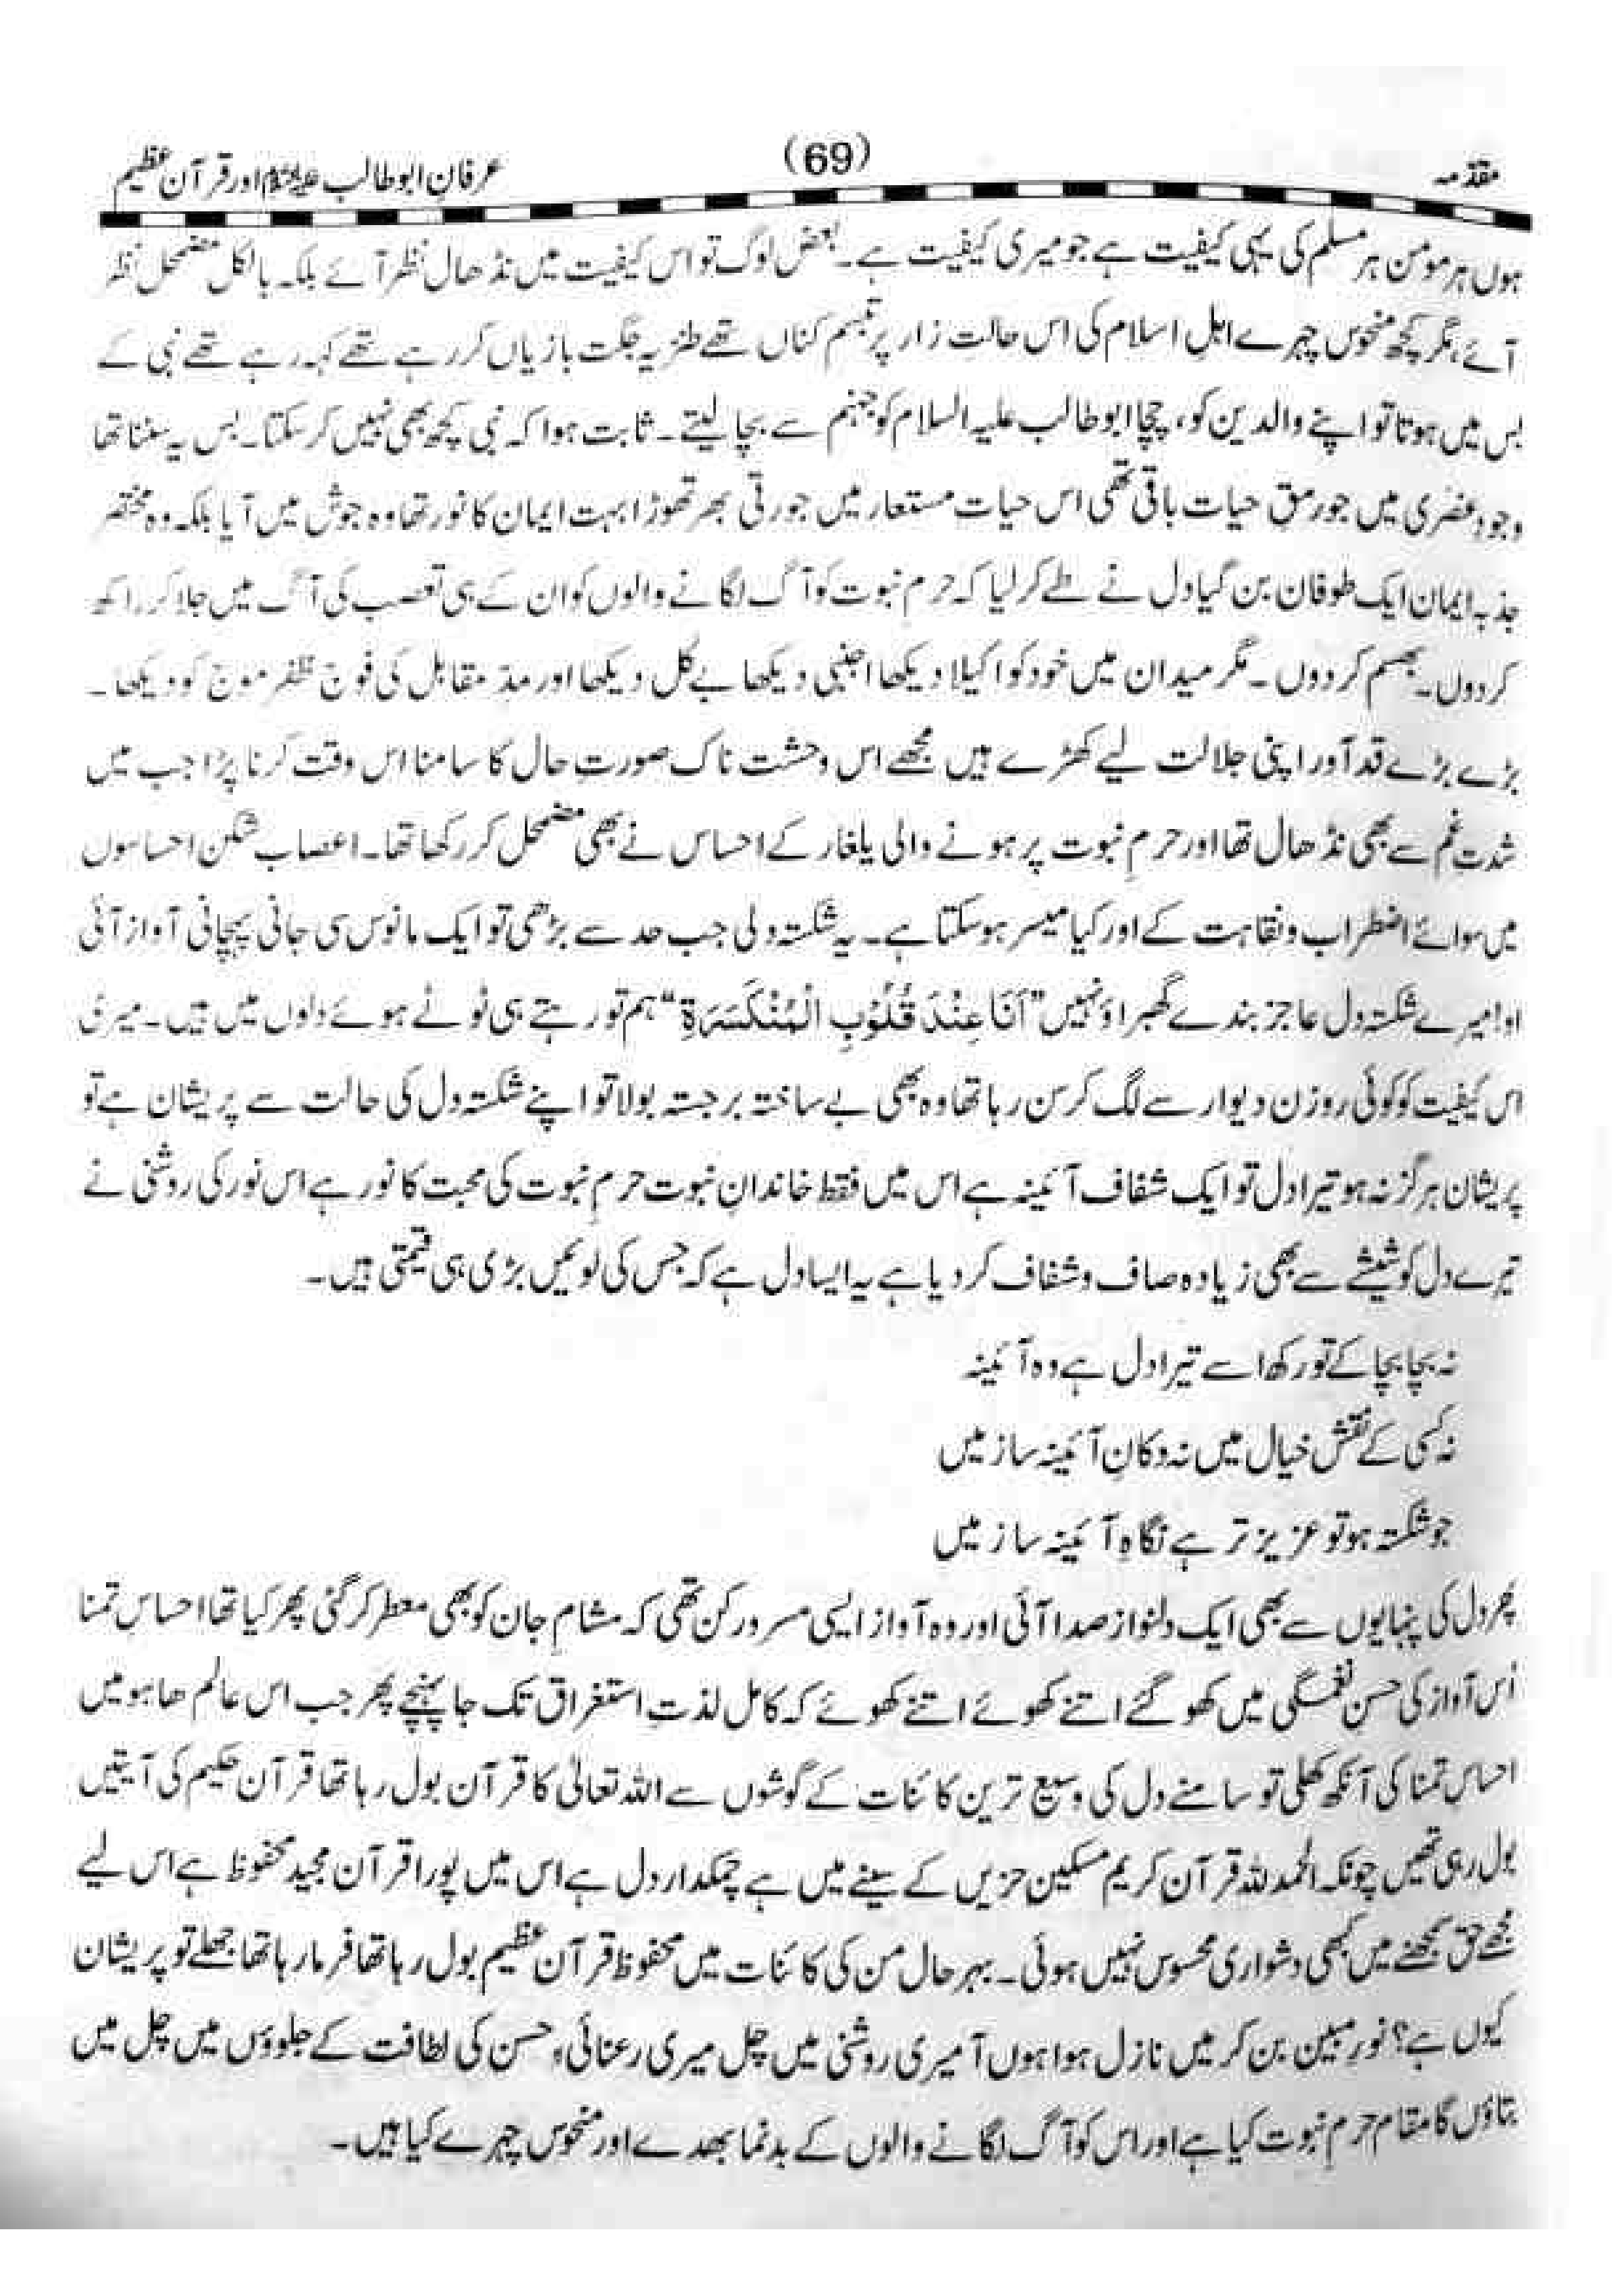 مقدمہ (69) عرفانِ ابوطالب علیہ السلام اور قرآن عظیم
ہوں ہر مومن ہر مسلم کی یہی کیفیت ہے جو میری کیفیت ہے۔ بعض لوگ تو اس کیفیت میں نڈھال نظر آئے بلکہ بالکل مضمحل نظر
آئے مگر کچھ منحوس چہرے اہل اسلام کی اس حالت زار پر تبسم کناں تھے طنزیہ جگت بازیاں کر رہے تھے کہہ رہے تھے نبی کے
بس میں ہوتا تو اپنے والدین کو، چچا ابوطالب علیہ السلام کو جہنم سے بچا لیتے۔ ثابت ہوا کہ نبی کچھ بھی نہیں کر سکتا۔ بس یہ سننا تھا
وجودِ عنصری میں جو رمقِ حیات باقی تھی اس حیات مستعار میں جو رتی بھر تھوڑا بہت ایمان کا نور تھا وہ جوش میں آیا بلکہ وہ مختصر
جذبہ ایمان ایک طوفان بن گیا دل نے طے کر لیا کہ حرم نبوت کو آگ لگانے والوں کو ان کے ہی تعصب کی آگ میں جلا کر راکھ
کر دوں۔ بھسم کر دوں۔ مگر میدان میں خود کو اکیلا دیکھا اجنبی دیکھا بے کل دیکھا اور مدّ مقابل کی فوج ظفر موج کو دیکھا۔
بڑے بڑے قد آور اپنی جلالت لیے کھڑے ہیں مجھے اس وحشت ناک صورتِ حال کا سامنا اس وقت کرنا پڑا جب میں
شدت غم سے بھی نڈھال تھا اور حرمِ نبوت پر ہونے والی یلغار کے احساس نے بھی مضمحل کر رکھا تھا۔ اعصاب شکن احساسوں
میں سوائے اضطراب و نقاہت کے اور کیا میسر ہو سکتا ہے۔ یہ شکستہ دلی جب حد سے بڑھی تو ایک مانوس سی جانی پہچانی آواز آئی
او! میرے شکستہ دل عاجز بندے گھبراؤ نہیں "اَنَا عِنْدَ قُلُوْبِ الْمُنْكَسَرَةِ" ہم تو رہتے ہی ٹوٹے ہوئے دلوں میں ہیں۔ میری
اس کیفیت کو کوئی روزن دیوار سے لگ کر سن رہا تھا وہ بھی بے ساختہ برجستہ بولا تو اپنے شکستہ دل کی حالت سے پریشان ہے تو
پریشان ہرگز نہ ہو تیرا دل تو ایک شفاف آئینہ ہے اس میں فقط خاندانِ نبوت حرمِ نبوت کی محبت کا نور ہے اس نور کی روشنی نے
تیرے دل کو شیشے سے بھی زیادہ صاف و شفاف کر دیا ہے یہ ایسا دل ہے کہ جس کی لوئیں بڑی ہی قیمتی ہیں۔
نہ بچا بچا کے تو رکھ اسے تیرا دل ہے وہ آئینہ
نہ کسی کے نقش خیال میں نہ دکانِ آئینہ ساز میں
جو شکستہ ہو تو عزیز تر ہے نگاہِ آئینہ ساز میں
پھر دل کی پنہایوں سے بھی ایک دلنواز صدا آئی اور وہ آواز ایسی مسرور کن تھی کہ مشامِ جان کو بھی معطر کر گئی پھر کیا تھا احساسِ تمنا
اُس آواز کی حسنِ نغمگی میں کھو گئے اتنے کھوئے اتنے کھوئے کہ کامل لذتِ استغراق تک جا پہنچے پھر جب اس عالم ھاہو میں
احساسِ تمنا کی آنکھ کھلی تو سامنے دل کی وسیع ترین کائنات کے گوشوں سے اللہ تعالیٰ کا قرآن بول رہا تھا قرآن حکیم کی آیتیں
بول رہی تھیں چونکہ الحمدللہ قرآن کریم مسکین حزیں کے سینے میں ہے چمکدار دل ہے اس میں پورا قرآن مجید محفوظ ہے اس لیے
مجھے حق سمجھنے میں کبھی دشواری محسوس نہیں ہوئی۔ بہرحال من کی کائنات میں محفوظ قرآن عظیم بول رہا تھا فرما رہا تھا جھلے تو پریشان
کیوں ہے؟ نورِ مبین بن کر میں نازل ہوا ہوں آ میری روشنی میں چل میری رعنائی، حسن کی لطافت کے جلوؤں میں چل میں
بتاؤں گا مقام حرمِ نبوت کیا ہے اور اس کو آگ لگانے والوں کے بدنما بھدے اور منحوس چہرے کیا ہیں۔